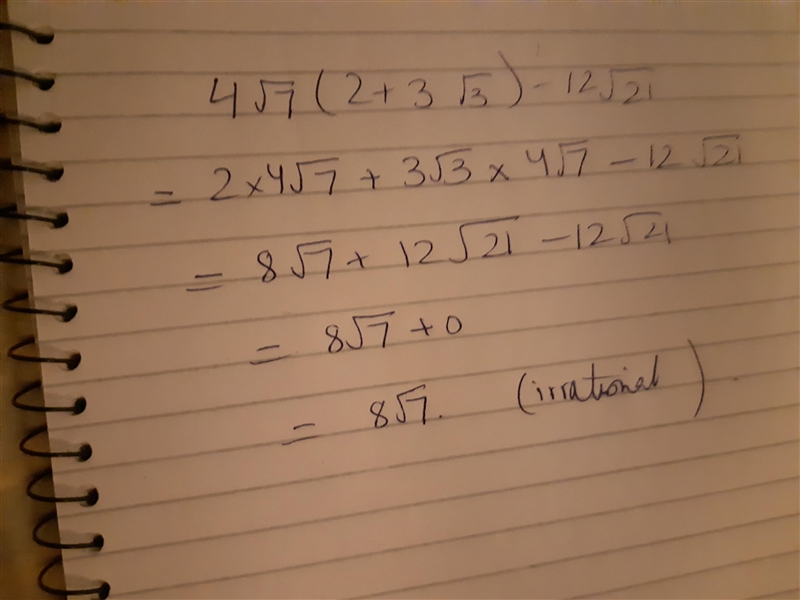 4√7(2+3√3)-12√21
= 2×4√7 + 3√3 × 4√7 - 12√21
= 8√7 + 12√21 - 12√21
= 8√7 + 0
= 8√7. (irrational).